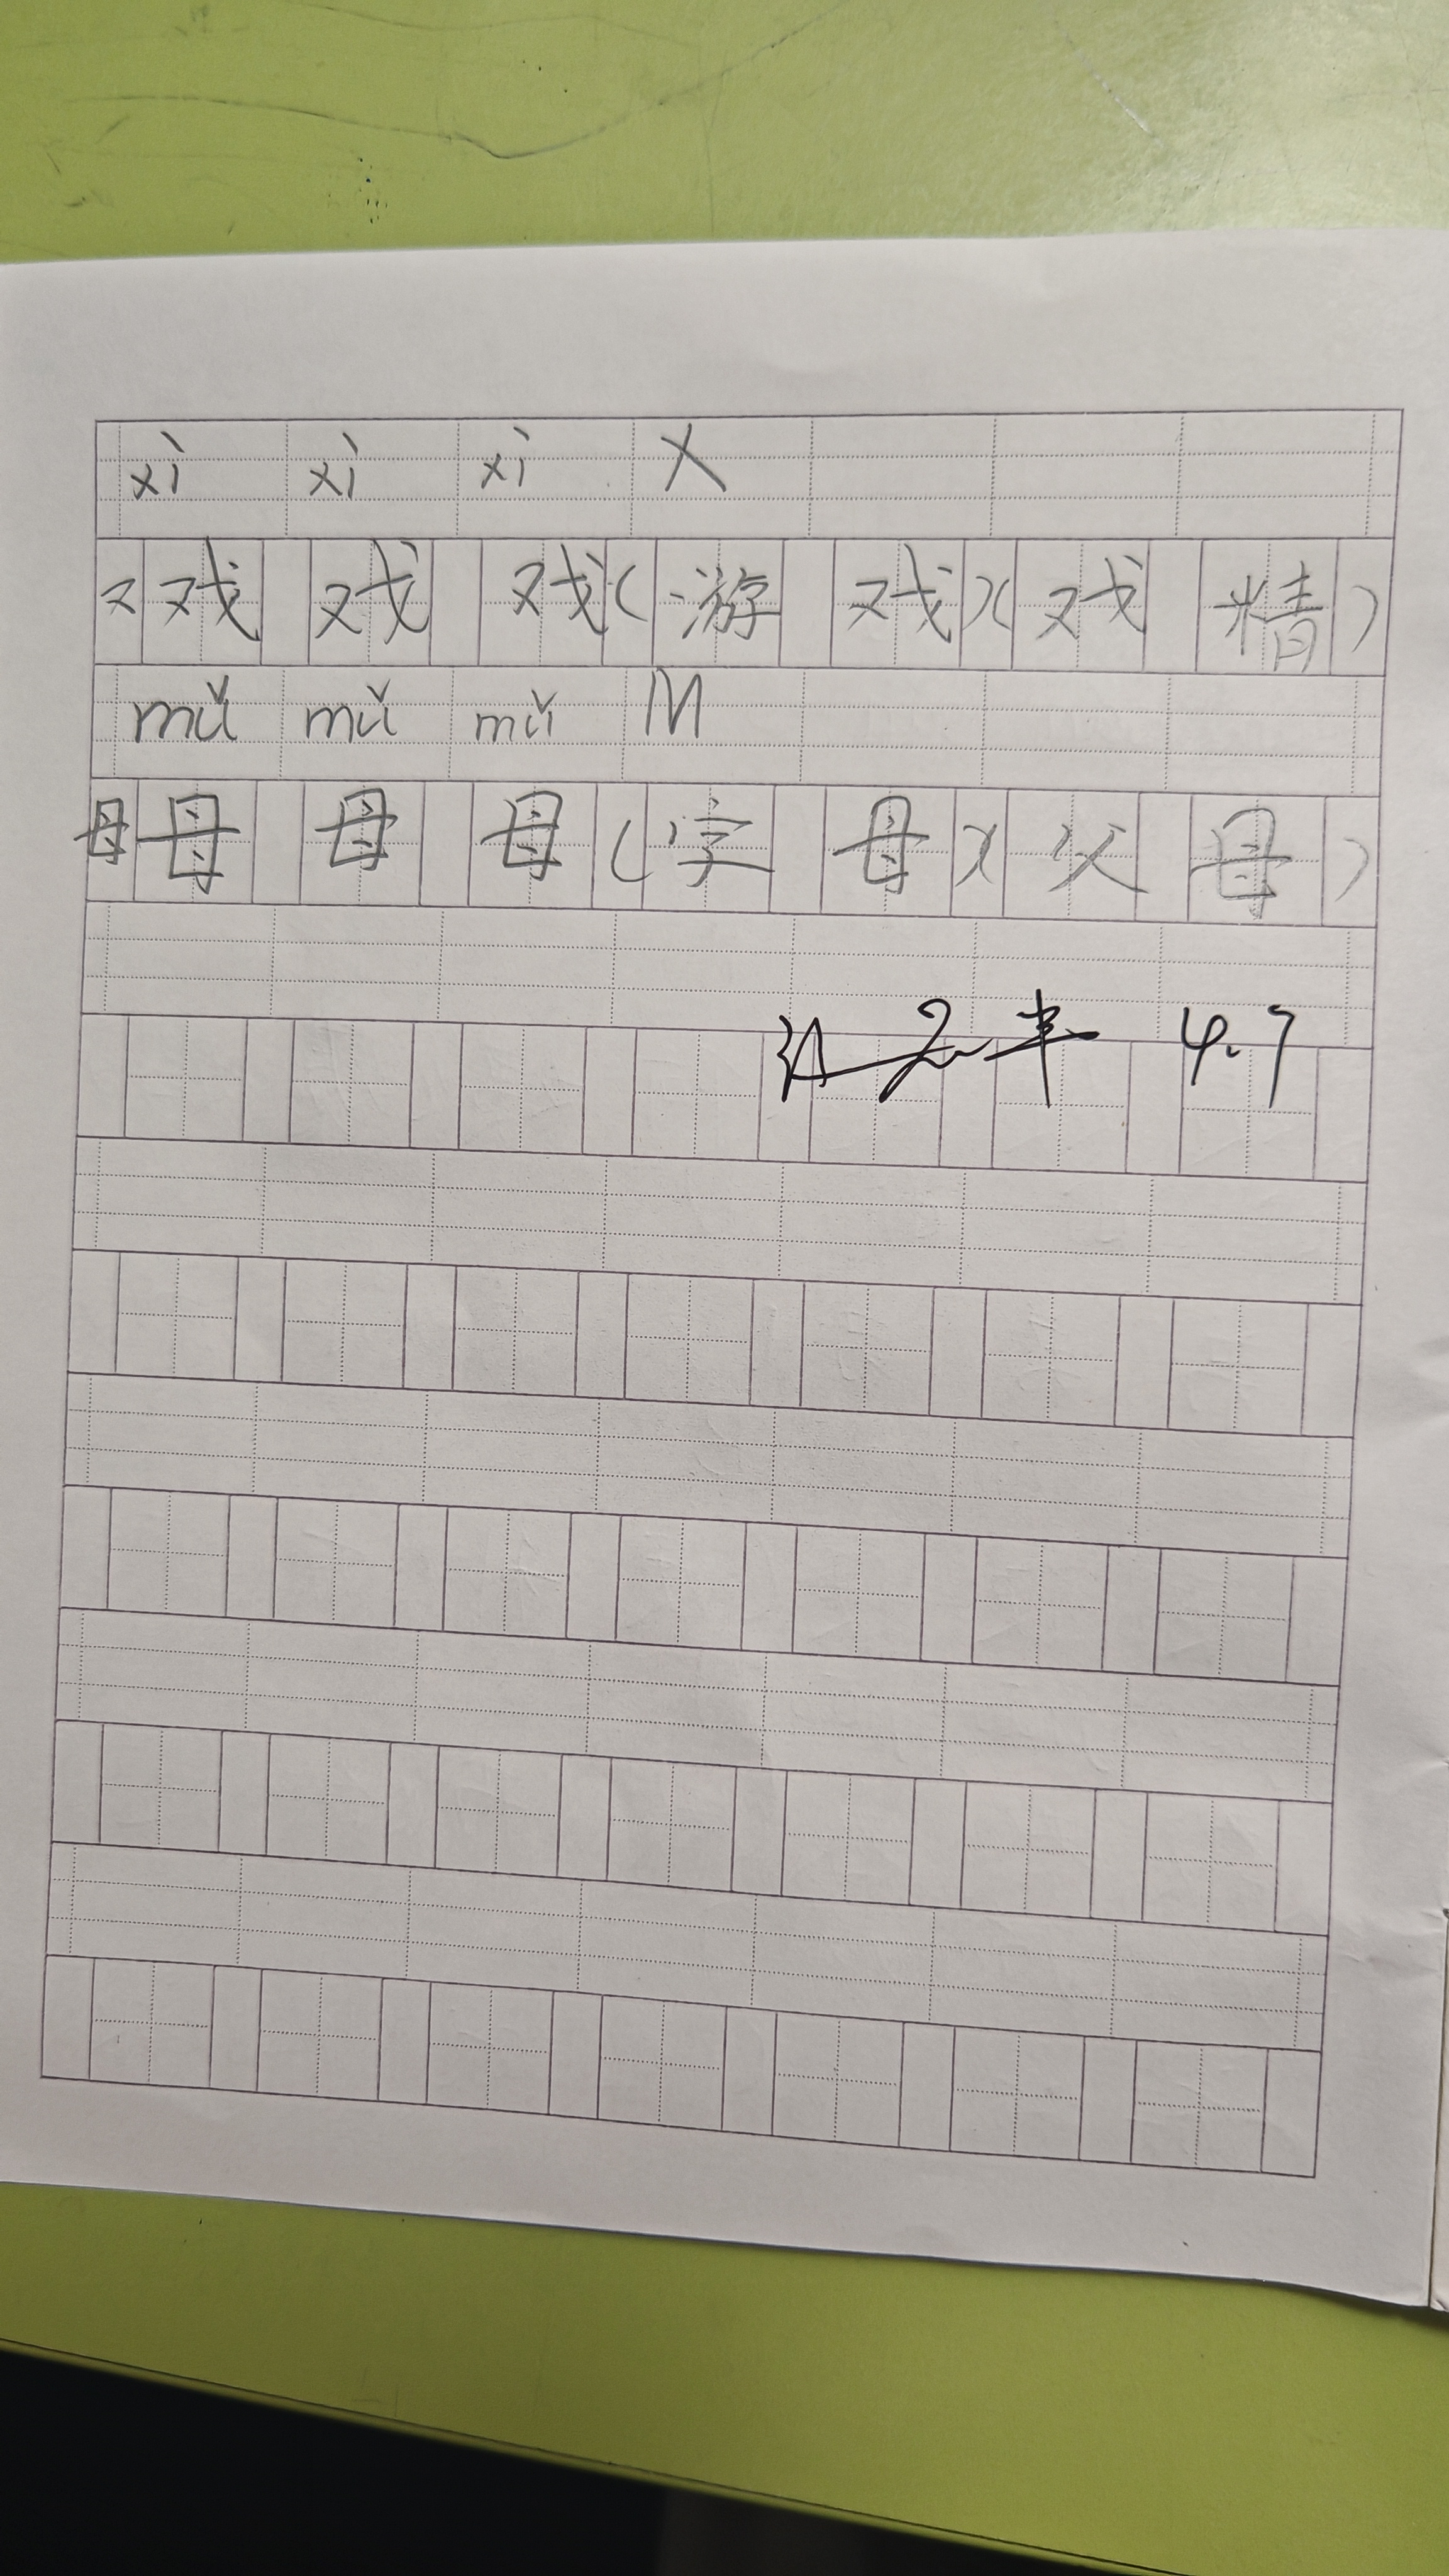 xì xì xì X
又戏 戏 戏(游戏)(戏精)
mǔ mǔ mǔ M
母母 母 母(字母)(父母)
4.7